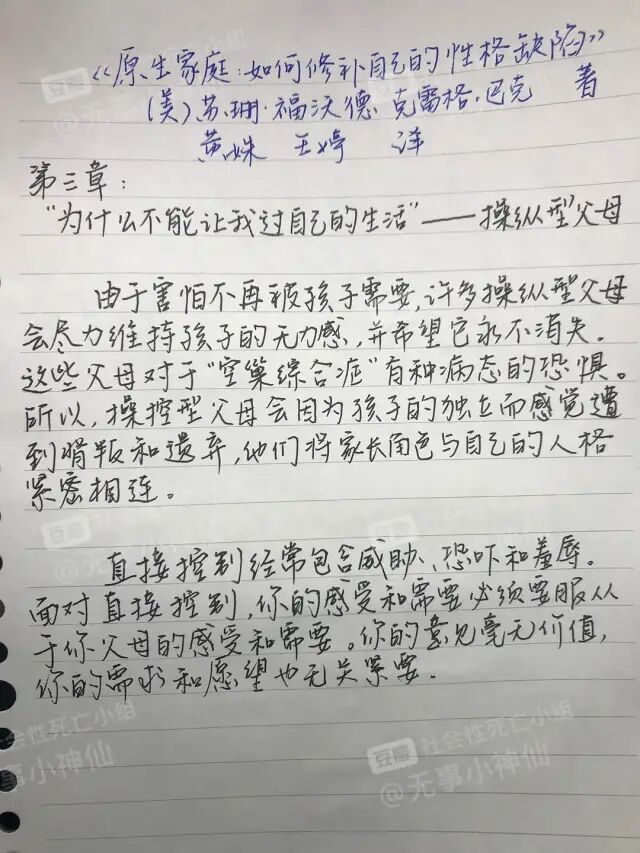 《原生家庭:如何修补自己的性格缺陷》
(美)苏珊·福沃德 克雷格·巴克 著
黄姝 王婷 译
第三章:
"为什么不能让我过自己的生活"——操纵型父母
由于害怕不再被孩子需要,许多操纵型父母
会尽力维持孩子的无力感,并希望它永不消失。
这些父母对于"空巢综合症"有种病态的恐惧。
所以,操控型父母会因为孩子的独立而感觉遭
到背叛和遗弃,他们将家长角色与自己的人格
紧密相连。
直接控制经常包含威胁、恐吓和羞辱。
面对直接控制,你的感受和需要必须要服从
于你父母的感受和需要。你的意见毫无价值,
你的需求和愿望也无关紧要.
豆瓣 社会性死亡小组
@无事小神仙